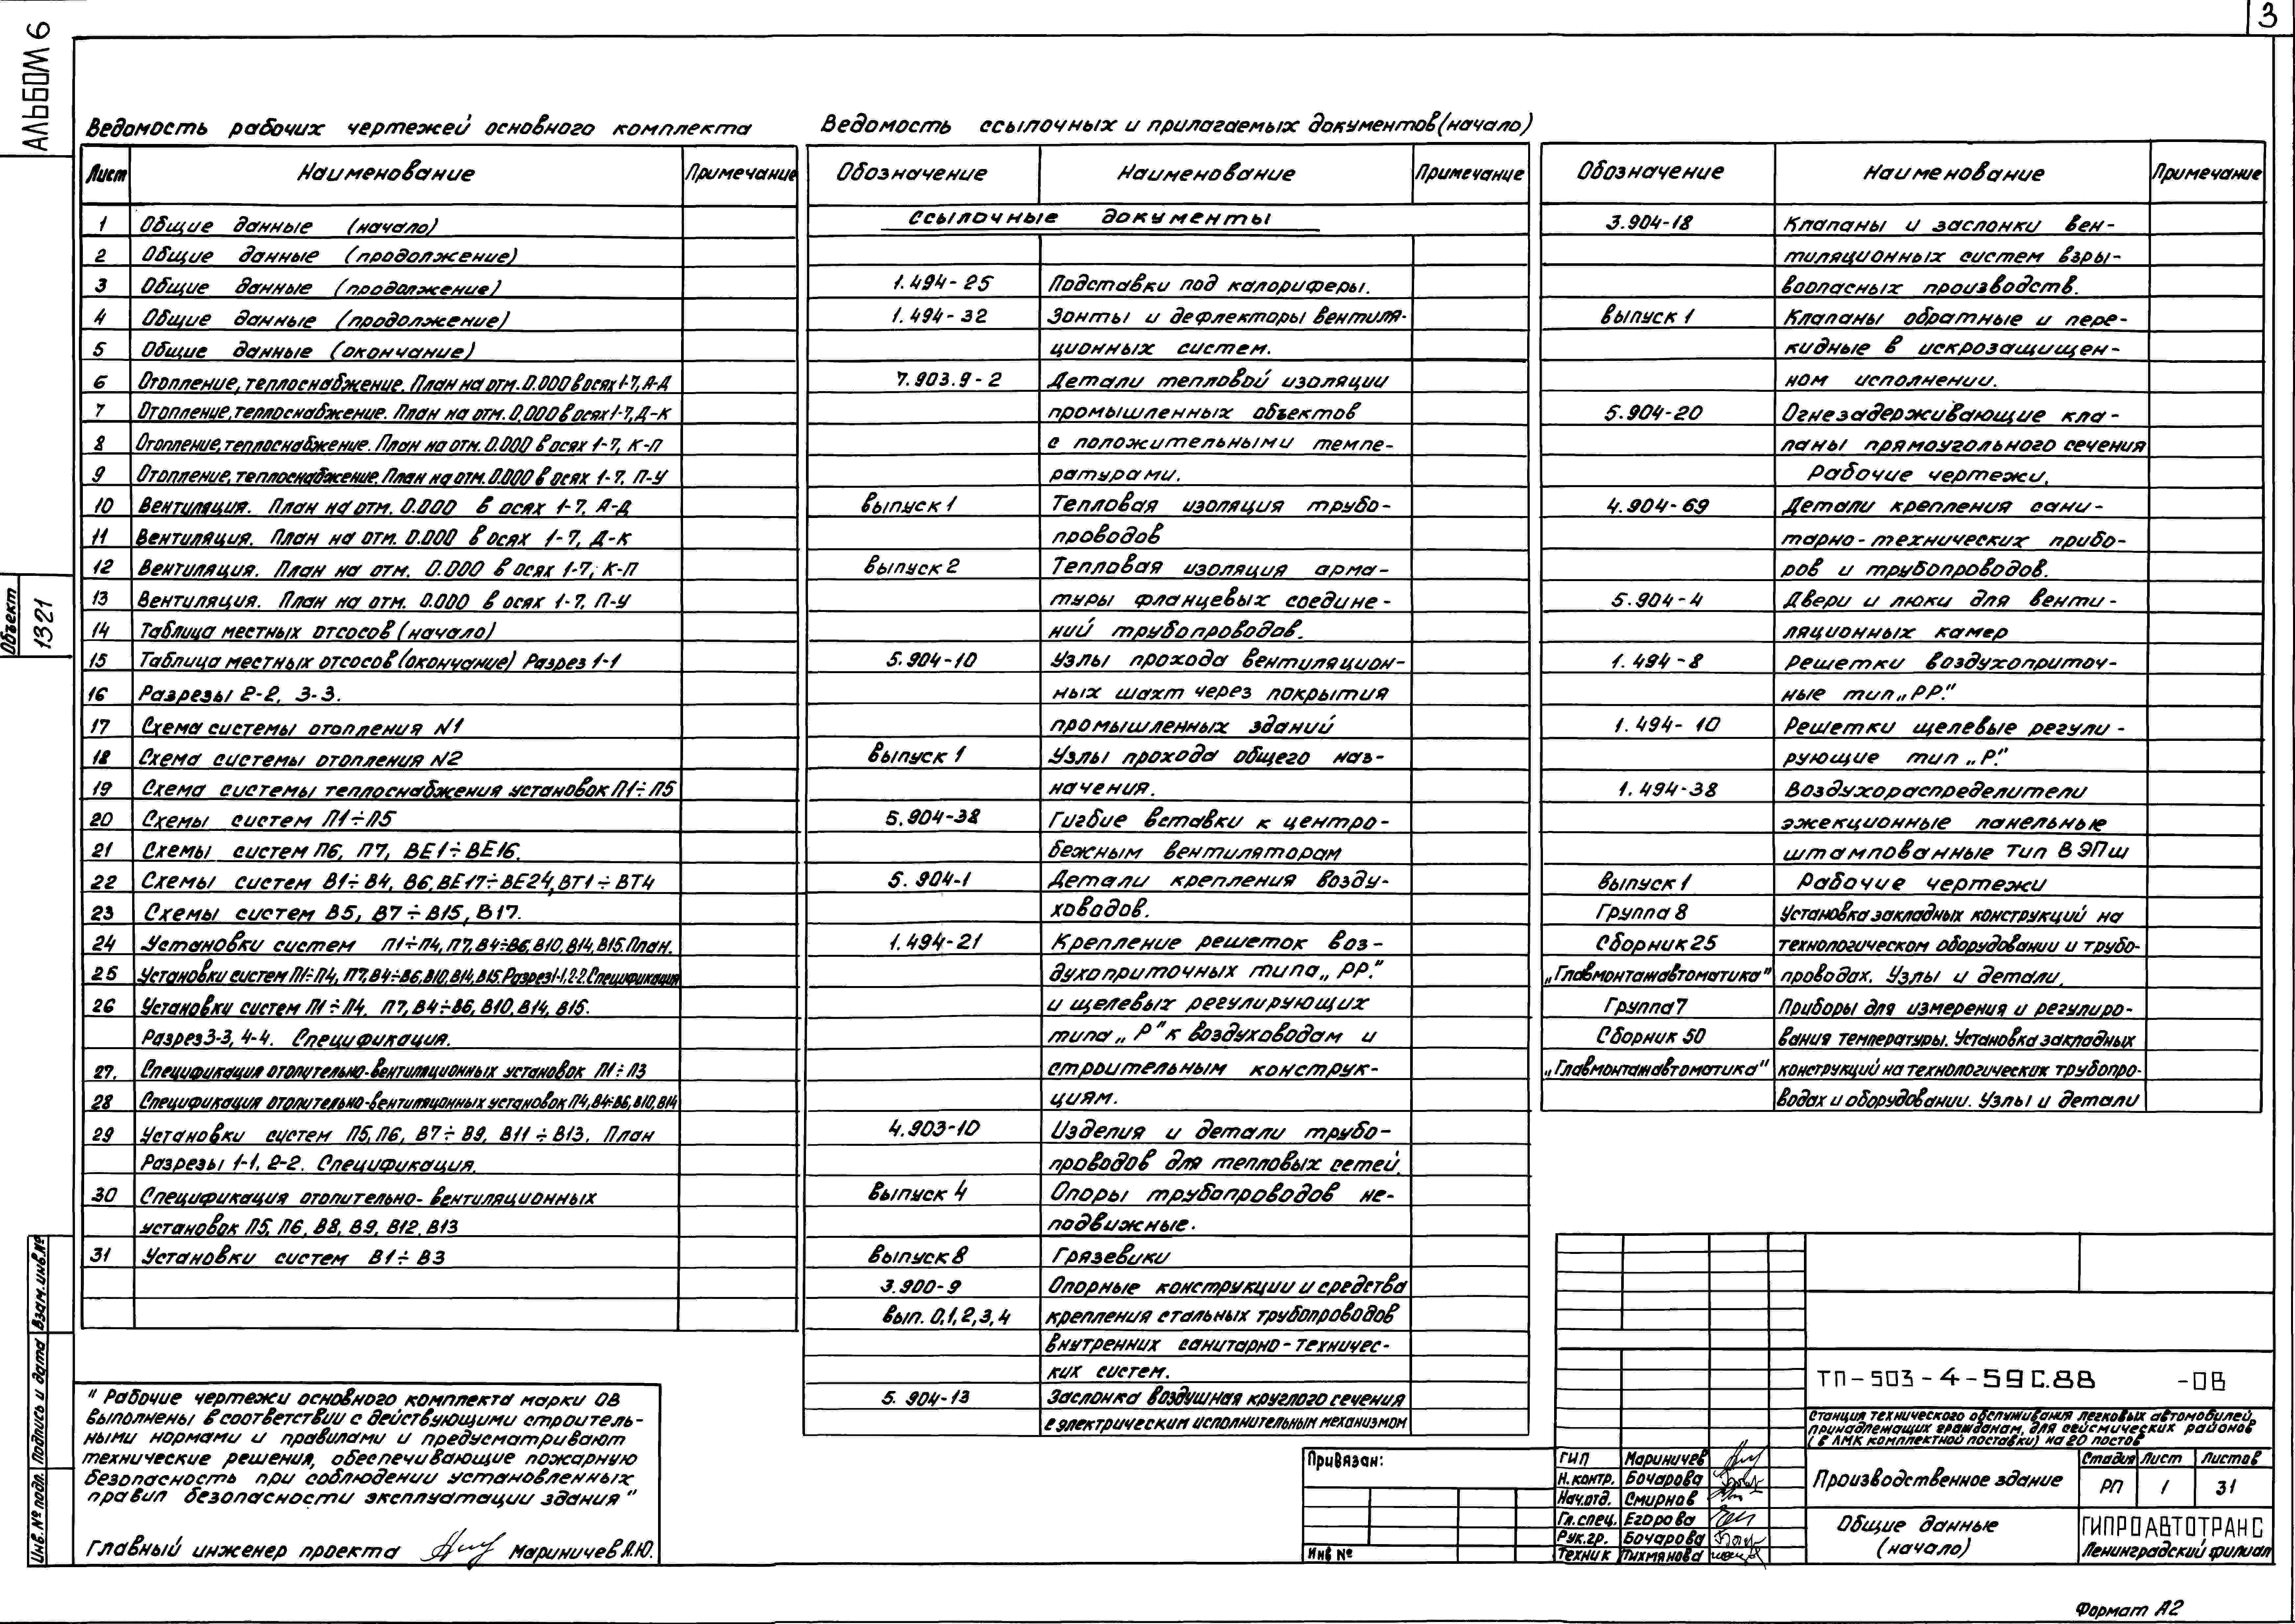 3
АЛЬБОМ 6
Ведомость рабочих чертежей основного комплекта
Лист Наименование Примечание
1 Общие данные (начало)
2 Общие данные (продолжение)
3 Общие данные (продолжение)
4 Общие данные (продолжение)
5 Общие данные (окончание)
6 Отопление, теплоснабжение. План на отм. 0.000 в осях 1-7, А-Д
7 Отопление, теплоснабжение. План на отм. 0.000 в осях 1-7, Д-К
8 Отопление, теплоснабжение. План на отм. 0.000 в осях 1-7, К-П
9 Отопление, теплоснабжение. План на отм. 0.000 в осях 1-7, П-У
10 Вентиляция. План на отм. 0.000 в осях 1-7, А-Д
11 Вентиляция. План на отм. 0.000 в осях 1-7, Д-К
12 Вентиляция. План на отм. 0.000 в осях 1-7, К-П
13 Вентиляция. План на отм. 0.000 в осях 1-7, П-У
14 Таблица местных отсосов (начало)
15 Таблица местных отсосов (окончание) Разрез 1-1
16 Разрезы 2-2, 3-3.
17 Схема системы отопления N1
18 Схема системы отопления N2
19 Схема системы теплоснабжения установок П1÷П5
20 Схемы систем П1÷П5
21 Схемы систем П6, П7, ВЕ1÷ВЕ16.
22 Схемы систем В1÷В4, В6, ВЕ17÷ВЕ24, ВТ1÷ВТ4
23 Схемы систем В5, В7÷В15, В17.
24 Установки систем П1÷П4, П7, В4÷В6, В10, В14, В15. План.
25 Установки систем П1÷П4, П7, В4÷В6, В10, В14, В15. Разрез 1-1, 2-2. Спецификация
26 Установки систем П1÷П4, П7, В4÷В6, В10, В14, В15.
Разрез 3-3, 4-4. Спецификация.
27. Спецификация отопительно-вентиляционных установок П1÷П3
28 Спецификация отопительно-вентиляционных установок П4, В4÷В6, В10, В14
29 Установки систем П5, П6, В7÷В9, В11÷В13. План
Разрезы 1-1, 2-2. Спецификация.
30 Спецификация отопительно-вентиляционных
установок П5, П6, В8, В9, В12, В13
31 Установки систем В1÷В3
Ведомость ссылочных и прилагаемых документов (начало)
Обозначение Наименование Примечание
Ссылочные документы
1.494-25 Подставки под калориферы.
1.494-32 Зонты и дефлекторы вентиля-
ционных систем.
7.903.9-2 Детали тепловой изоляции
промышленных объектов
с положительными темпе-
ратурами.
Выпуск 1 Тепловая изоляция трубо-
проводов
Выпуск 2 Тепловая изоляция арма-
туры фланцевых соедине-
ний трубопроводов.
5.904-10 Узлы прохода вентиляцион-
ных шахт через покрытия
промышленных зданий
Выпуск 1 Узлы прохода общего наз-
начения.
5.904-38 Гигбие вставки к центро-
бежным вентиляторам
5.904-1 Детали крепления возду-
ховодов.
1.494-21 Крепление решеток воз-
духоприточных типа „РР."
и щелевых регулирующих
типа „Р" к воздуховодам и
строительным конструк-
циям.
4.903-10 Изделия и детали трубо-
проводов для тепловых сетей.
Выпуск 4 Опоры трубопроводов не-
подвижные.
Выпуск 8 Грязевики
3.900-9 Опорные конструкции и средства
вып. 0,1,2,3,4 крепления стальных трубопроводов
внутренних санитарно-техничес-
ких систем.
5.904-13 Заслонка воздушная круглого сечения
с электрическим исполнительным механизмом
Обозначение Наименование Примечание
3.904-18 Клапаны и заслонки вен-
тиляционных систем взры-
воопасных производств.
Выпуск 1 Клапаны обратные и пере-
кидные в искрозащищен-
ном исполнении.
5.904-20 Огнезадерживающие кла-
паны прямоугольного сечения
Рабочие чертежи.
4.904-69 Детали крепления сани-
тарно-технических прибо-
ров и трубопроводов.
5.904-4 Двери и люки для венти-
ляционных камер
1.494-8 Решетки воздухоприточ-
ные тип „РР."
1.494-10 Решетки щелевые регули-
рующие тип „Р."
1.494-38 Воздухораспределители
эжекционные панельные
штампованные тип ВЭПш
Выпуск 1 Рабочие чертежи
Группа 8 Установка закладных конструкций на
Сборник 25 технологическом оборудовании и трубо-
„Главмонтажавтоматика" проводах. Узлы и детали.
Группа 7 Приборы для измерения и регулиро-
Сборник 50 вания температуры. Установка закладных
„Главмонтажавтоматика" конструкций на технологических трубопро-
водах и оборудовании. Узлы и детали
Объект
1321
Инв. № подл. Подпись и дата Взам. инв. №
"Рабочие чертежи основного комплекта марки ОВ
выполнены в соответствии с действующими строитель-
ными нормами и правилами и предусматривают
технические решения, обеспечивающие пожарную
безопасность при соблюдении установленных
правил безопасности эксплуатации здания"
Главный инженер проекта Мариничев А.Ю.
Привязан:
Инв №
ТП-503-4-59С.88 -ОВ
Станция технического обслуживания легковых автомобилей,
принадлежащих гражданам, для сейсмических районов
(в ЛМК комплектной поставки) на 20 постов
ГИП Мариничев
Н.контр. Бочарова
Нач.отд. Смирнов
Гл.спец. Егорова
Рук.гр. Бочарова
Техник Пихмянова
Производственное здание
Стадия Лист Листов
РП 1 31
Общие данные
(начало)
ГИПРОАВТОТРАНС
Ленинградский филиал
Формат А2